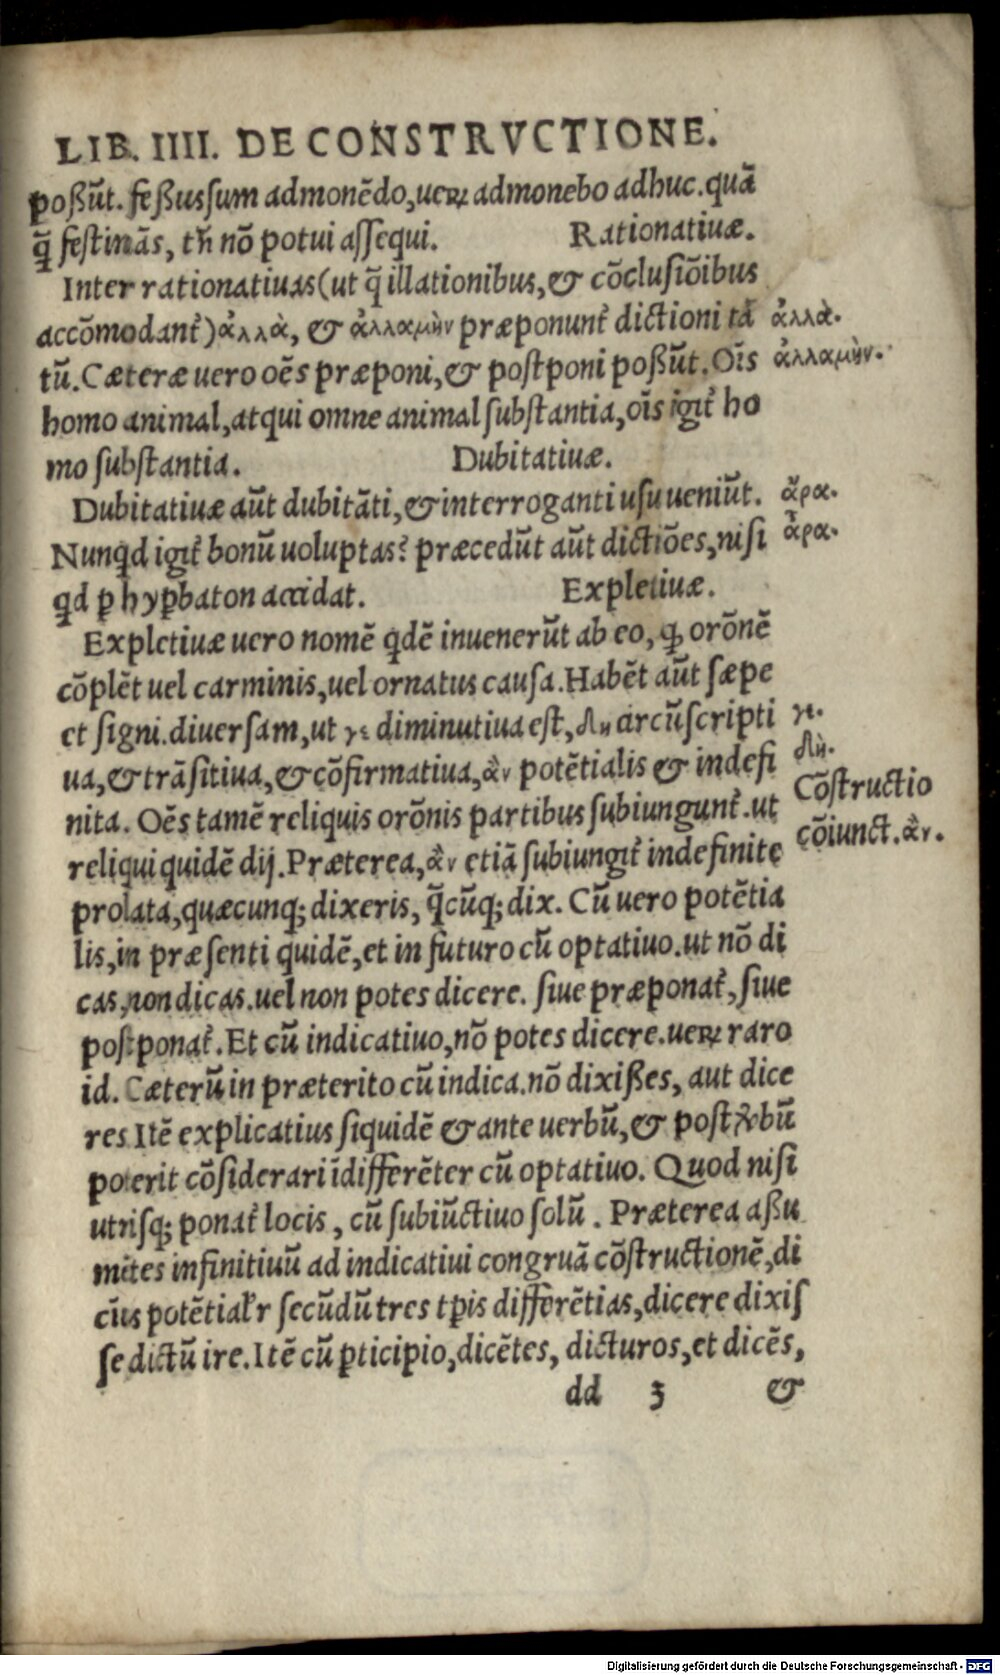 LIB. IIII. DE CONSTRVCTIONE.
poßũt. feßus sum admonẽdo, ueꝝ admonebo adhuc. quã
q̃ festinãs, tñ nõ potui assequi. Rationatiuæ.
Inter rationatiuas (ut q̃ illationibus, & cõclusiõibus
accõmodant᷑) ἀλλὰ, & ἀλλαμὴν præponunt᷑ dictioni tã ἀλλὰ.
tũ. Cæteræ uero oẽs præponi, & postponi poßũt. Oĩs ἀλλαμὴν.
homo animal, atqui omne animal substantia, oĩs igit᷑ ho
mo substantia. Dubitatiuæ.
Dubitatiuæ aũt dubitãti, & interroganti usu ueniũt. ἄρα.
Nunqd igit᷑ bonũ uoluptas? præcedũt aũt dictiões, nisi ἆρα.
qd ꝑ hyꝑbaton accidat. Expletiuæ.
Expletiuæ uero nomẽ qdẽ inuenerũt ab eo, ꝙ orõnẽ
cõplẽt uel carminis, uel ornatus causa. Habẽt aũt sæpe
et signi. diuersam, ut γε diminutiua est, δη circũscripti γε.
ua, & trãsitiua, & cõfirmatiua, ἂν potẽtialis & indefi δὴ.
nita. Oẽs tamẽ reliquis orõnis partibus subiungunt᷑. ut Cõstructio
reliqui quidẽ dij. Præterea, ἂν etiã subiungit᷑ indefinite cõiunct. ἂν.
prolata, quæcunq; dixeris, q̃cũq; dix. Cũ uero potẽtia
lis, in præsenti quidẽ, et in futuro cũ optatiuo. ut nõ di
cas, non dicas. uel non potes dicere. siue præponat᷑, siue
postponat᷑. Et cũ indicatiuo, nõ potes dicere. ueꝝ raro
id. Cæterũ in præterito cũ indica. nõ dixißes, aut dice
res Itẽ explicatius siquidẽ & ante uerbũ, & post ỽbũ
poterit cõsiderari ĩdifferẽter cũ optatiuo. Quod nisi
utrisq; ponat᷑ locis, cũ subiũctiuo solũ. Præterea aßu
mẽtes infinitiuũ ad indicatiui congruã cõstructionẽ, di
cĩus potẽtialr̃ secũdũ tres tꝑis differẽtias, dicere dixis
se dictũ ire. Itẽ cũ ꝑticipio, dicẽtes, dicturos, et dicẽs,
dd 3 &
Digitalisierung gefördert durch die Deutsche Forschungsgemeinschaft - DFG